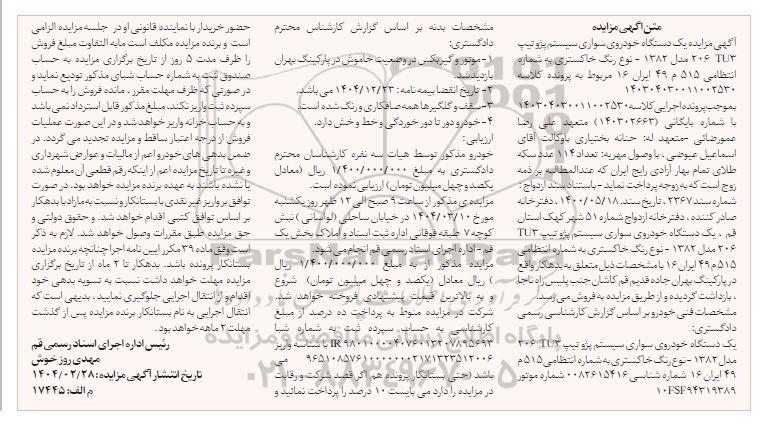 متن آگهی مزایده
آگهی مزایده یک دستگاه خودروی سواری سیستم پژو تیپ
206 TU3 مدل 1382 - نوع رنگ خاکستری به شماره
انتظامی 515 م 49 ایران 16 مربوط به پرونده کلاسه
140304030011002530
بموجب پرونده اجرایی کلاسه 140304030011002530
با شماره بایگانی (140302663) متعهد علی رضا
عمورضائی -متعهد له: حنانه بختیاری باوکالت آقای
اسماعیل عیوضی ، با وصول مهریه: تعداد 114 عدد سکه
طلای تمام بهار آزادی رایج ایران که عندالمطالبه بر ذمه
زوج است که به زوجه پرداخت نماید - با استناد سند ازدواج:
شماره سند 2367 ، تاریخ سند 1400/05/18، دفترخانه
صادر کننده ، دفترخانه ازدواج شماره 51 شهر کهک استان
قم ، یک دستگاه خودروی سواری سیستم پژو تیپ TU3
206 مدل 1382 - نوع رنگ خاکستری به شماره انتظامی
515 م 49 ایران 16 با مشخصات ذیل متعلق به بدهکار واقع
در پارکینگ بهران جاده قدیم قم کاشان جنب پلیس راه ناجا
، بازداشت گردیده و از طریق مزایده به فروش می رسد.
مشخصات فنی خودرو بر اساس گزارش کارشناسی رسمی
دادگستری:
یک دستگاه خودروی سواری سیستم پژو تیپ 206 TU3
مدل 1382 - نوع رنگ خاکستری به شماره انتظامی 515 م
49 ایران 16 شماره شناسی 0082615416 شماره موتور
10FSF94319389
مشخصات بدنه بر اساس گزارش کارشناس محترم
دادگستری:
1- موتور و گیربکس در وضعیت خاموش در پارکینگ بهران
بازدید شد.
2- تاریخ انقضا بیمه نامه : 1404/12/23 می باشد.
3-سقف و گلگیرها همه صافکاری و رنگ شده است.
4- خودرو دور تا دور خوردگی و خط و خش دارد.
ارزیابی:
خودرو مذکور توسط هیات سه نفره کارشناسان محترم
دادگستری به مبلغ 1/400/000/000 ریال (معادل
یکصد و چهل میلیون تومان) ارزیابی نموده است.
مزایده ی مذکور از ساعت 9 صبح الی 12 ظهر روز یکشنبه
مورخ 1404/03/10 در خیابان ساحلی (لواسانی ) نبش
کوچه 7 طبقه فوقانی اداره ثبت اسناد و املاک بخش یک
قم - اداره اجرای اسناد رسمی قم انجام می شود.
مزایده مذکور از به مبلغ 1/400/000/000 ریال
) ریال معادل (یکصد و چهل میلیون تومان) شروع
و به بالاترین قیمت پیشنهادی فروخته خواهد شد.
شرکت در مزایده منوط به پرداخت ده درصد از مبلغ
کارشناسی به حساب سپرده ثبت به شماره شبا
IR 980100004076013207895692 با شناسه واریز
965108576100000000217132351200۶ می
باشد (حتی بستانکار پرونده هم اگر قصد شرکت و رقابت
در مزایده را دارد می بایست 10 درصد را پرداخت نمائید و
حضور خریدار یا نماینده قانونی او در جلسه مزایده الزامی
است و برنده مزایده مکلف است مابه التفاوت مبلغ فروش
را ظرف مدت 5 روز از تاریخ برگزاری مزایده به حساب
صندوق ثبت به شماره حساب شبای مذکور تودیع نماید و
در صورتی که ظرف مهلت مقرر ، مانده فروش را به حساب
سپرده ثبت واریز نکند، مبلغ مذکور قابل استرداد نمی باشد
و به حساب خزانه واریز خواهد شد و در این صورت عملیات
فروش از درجه اعتبار ساقط و مزایده تجدید می گردد. در
ضمن بدهی های خودرو اعم از مالیات و عوارض شهرداری
و غیره تا تاریخ مزایده اعم از اینکه رقم قطعی آن معلوم شده
یا نشده باشند به عهده برنده مزایده خواهد بود. در صورت
توافق بر واریز غیر نقدی با بستانکار و نسبت به مازاد با بدهکار
بر اساس توافق کتبی اقدام خواهد شد. و حقوق دولتی و
حق مزایده طبق مقررات وصول خواهد شد. لازم به ذکر
است وفق ماده 39 مکرر آیین نامه اجرا چنانچه برنده مزایده
بستانکار پرونده باشد. بدهکار تا 2 ماه از تاریخ برگزاری
مزایده مهلت خواهد داشت نسبت به تسویه بدهی خود
اقدام و از انتقال اجرایی جلوگیری نمایید ، بدیهی است که
انتقال اجرایی به نام بستانکار برنده مزایده پس از گذشت
مهلت 2 ماهه خواهد بود.
رئیس اداره اجرای اسناد رسمی قم
مهدی روز خوش
تاریخ انتشار آگهی مزایده: 1404/02/28
م الف: 17445